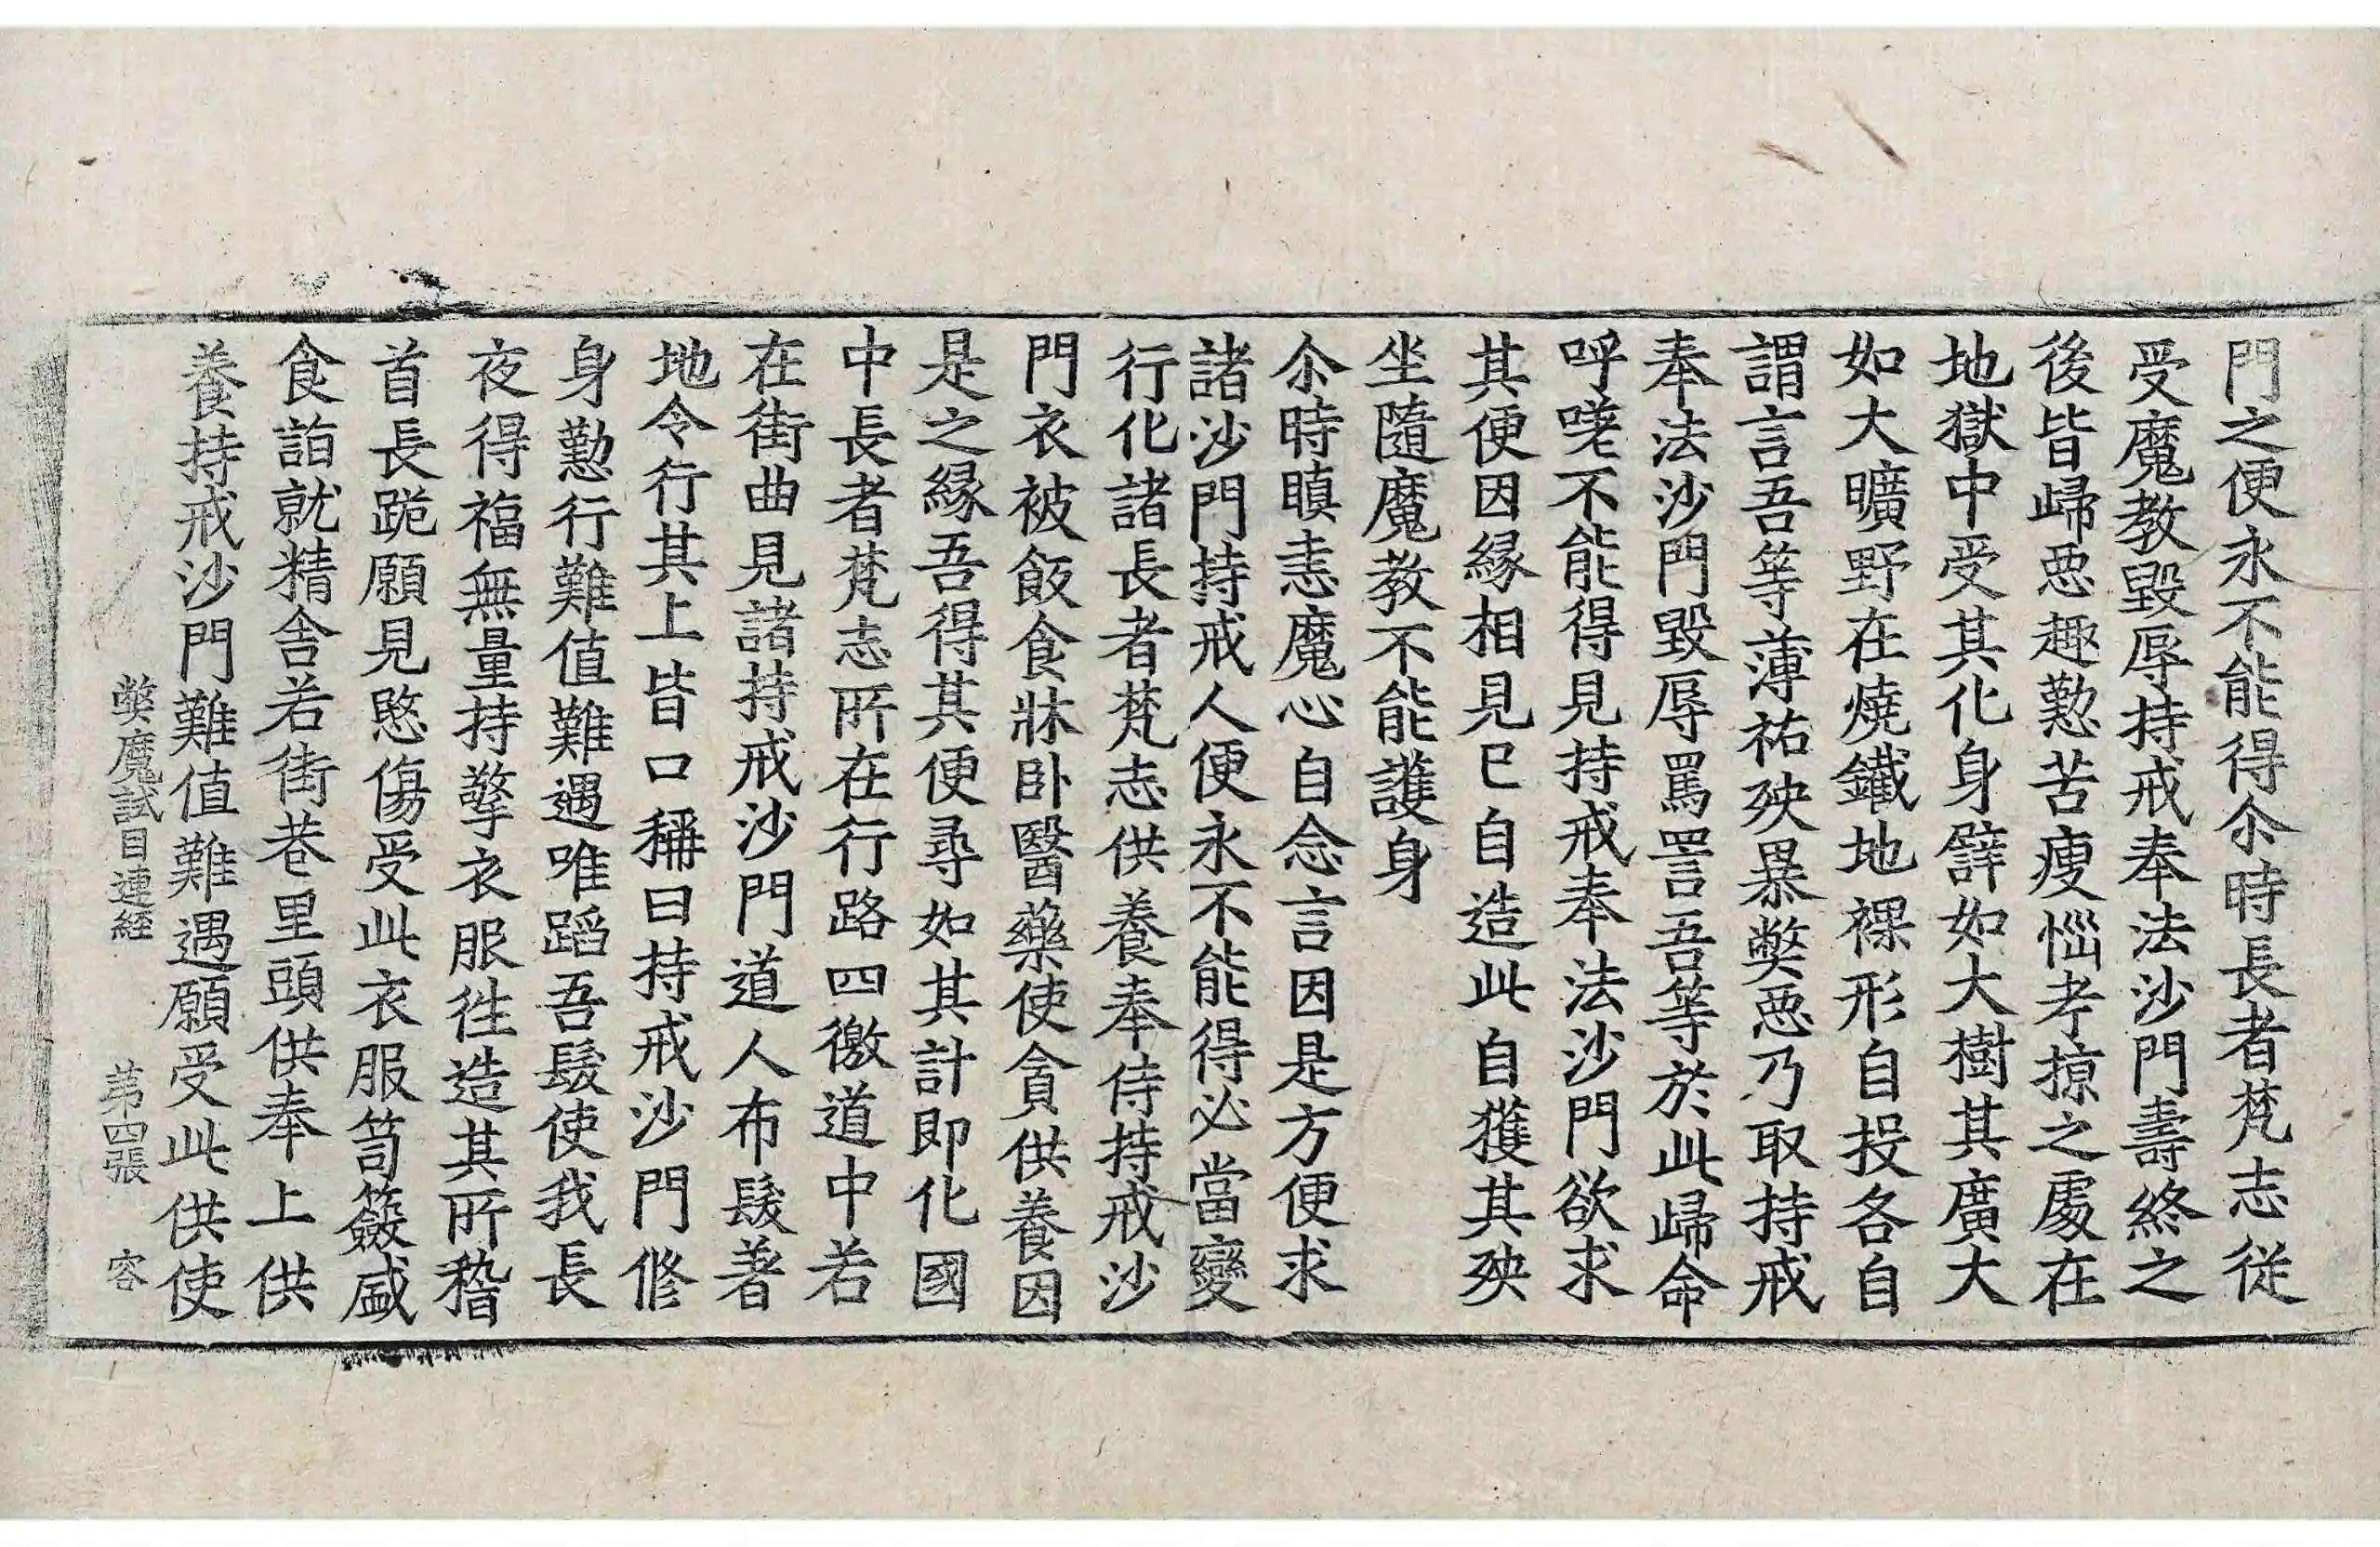 門之便永不能得尒時長者梵志從
受魔教毀辱持戒奉法沙門壽終之
後皆歸惡趣懃苦瘦惱考掠之處在
地獄中受其化身譬如大樹其廣大
如大曠野在燒鐵地裸形自投各自
謂言吾等薄祐殃暴弊惡乃取持戒
奉法沙門毀辱罵詈吾等於此歸命
呼嗟不能得見持戒奉法沙門欲求
其便因緣相見已自造此自獲其殃
坐隨魔教不能護身
尒時瞋恚魔心自念言因是方便求
諸沙門持戒人便永不能得必當變
行化諸長者梵志供養奉侍持戒沙
門衣被飯食牀臥醫藥使貪供養因
是之緣吾得其便尋如其計即化國
中長者梵志所在行路四徼道中若
在街曲見諸持戒沙門道人布髮著
地令行其上皆口稱曰持戒沙門修
身懃行難值難遇唯蹈吾髮使我長
夜得福無量持擎衣服往造其所稽
首長跪願見愍傷受此衣服笥簽盛
食詣就精舍若街巷里頭供奉上供
養持戒沙門難值難遇願受此供使
弊魔試目連經 第四張 容